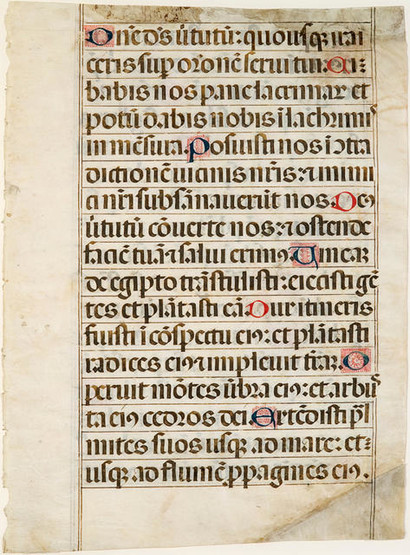 Dñe ds ũtutũ: quousq; irai
ceris sup orõne serui tui. Ci:
babis nos pane lacrimar et
potũ dabis nobis ĩ lachrimis
in mẽsura. Posuisti nos ĩ cõtra
dictionẽ uicinis nr̃is: ⁊ inimi
ci nr̃i subsãnauerũt nos. De9
ũtutũ cõuerte nos: ⁊ ostende
faciẽ tuã ⁊ salui erim9. Uineaʒ
de egipto trãstulisti: eiecisti gẽ
tes et plãtasti eã. Dux itineris
fuisti ĩ cõspectu ei9: et plãtasti
radices ei9 ⁊ impleuit tr̃aʒ. O
peruit mõtes ũbra ei9: et arbus
ta ei9 cedros dei. Extẽdisti pal
mites suos usq; ad mare: et:
usq; ad flumẽ ppagines ei9.